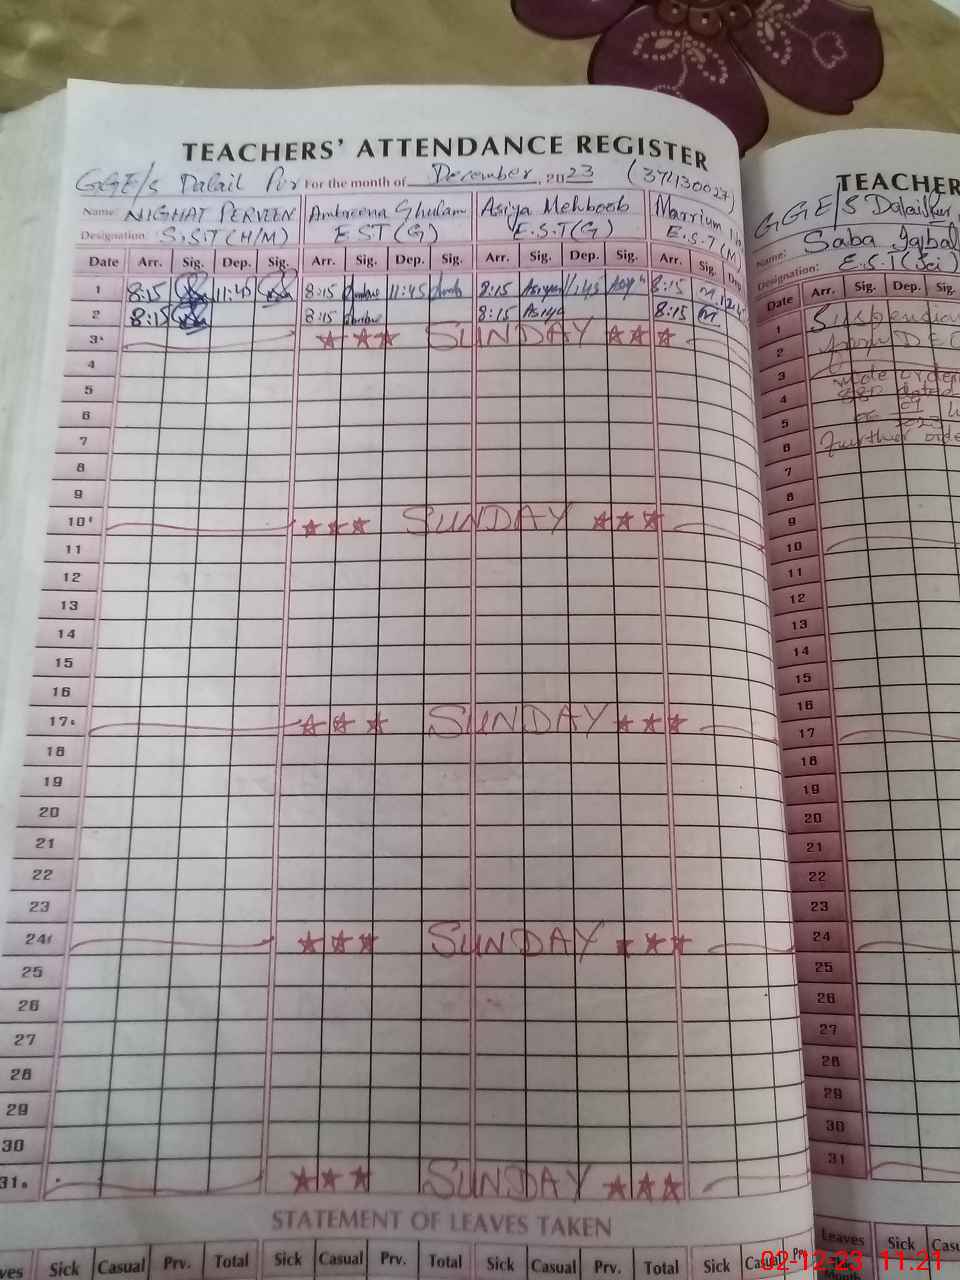 TEACHERS' ATTENDANCE REGISTER
GGE/s Dalail Pur For the month of December, 2023 (37430027)
Name: NIGHAT PERVEEN Ambreena Ghulam Asiya Mehboob Marrium
Designation: S.S.T (H/M) E.S.T (G) E.S.T (G) E.S.T (M)
Date Arr. Sig. Dep. Sig. Arr. Sig. Dep. Sig. Arr. Sig. Dep. Sig. Arr. Sig. Dep
1 8:15 11:45 8:15 11:45 8:15 Asiya 11:45 Asiya 8:15 M
2 8:15 8:15 8:15 Asiya 8:15 M
3 ★★★ SUNDAY ★★★
4
5
6
7
8
9
10 ★★★ SUNDAY ★★★
11
12
13
14
15
16
17 ★★★ SUNDAY ★★★
18
19
20
21
22
23
24 ★★★ SUNDAY ★★★
25
26
27
28
29
30
31 ★★★ SUNDAY ★★★
STATEMENT OF LEAVES TAKEN
ves Sick Casual Prv. Total Sick Casual Prv. Total Sick Casual Prv. Total Sick Casual Prv
TEACHER
GGE/S Dalail Pur
Name: Saba Iqbal
Designation: E.S.T (Sci)
Date Arr. Sig. Dep. Sig.
1 Suspension
2 from D E O
3 wide order
4 880 dated
5
6 further orde
7
8
9
10
11
12
13
14
15
16
17
18
19
20
21
22
23
24
25
26
27
28
29
30
31
Leaves Sick Casu
Month
02-12-23 11:21